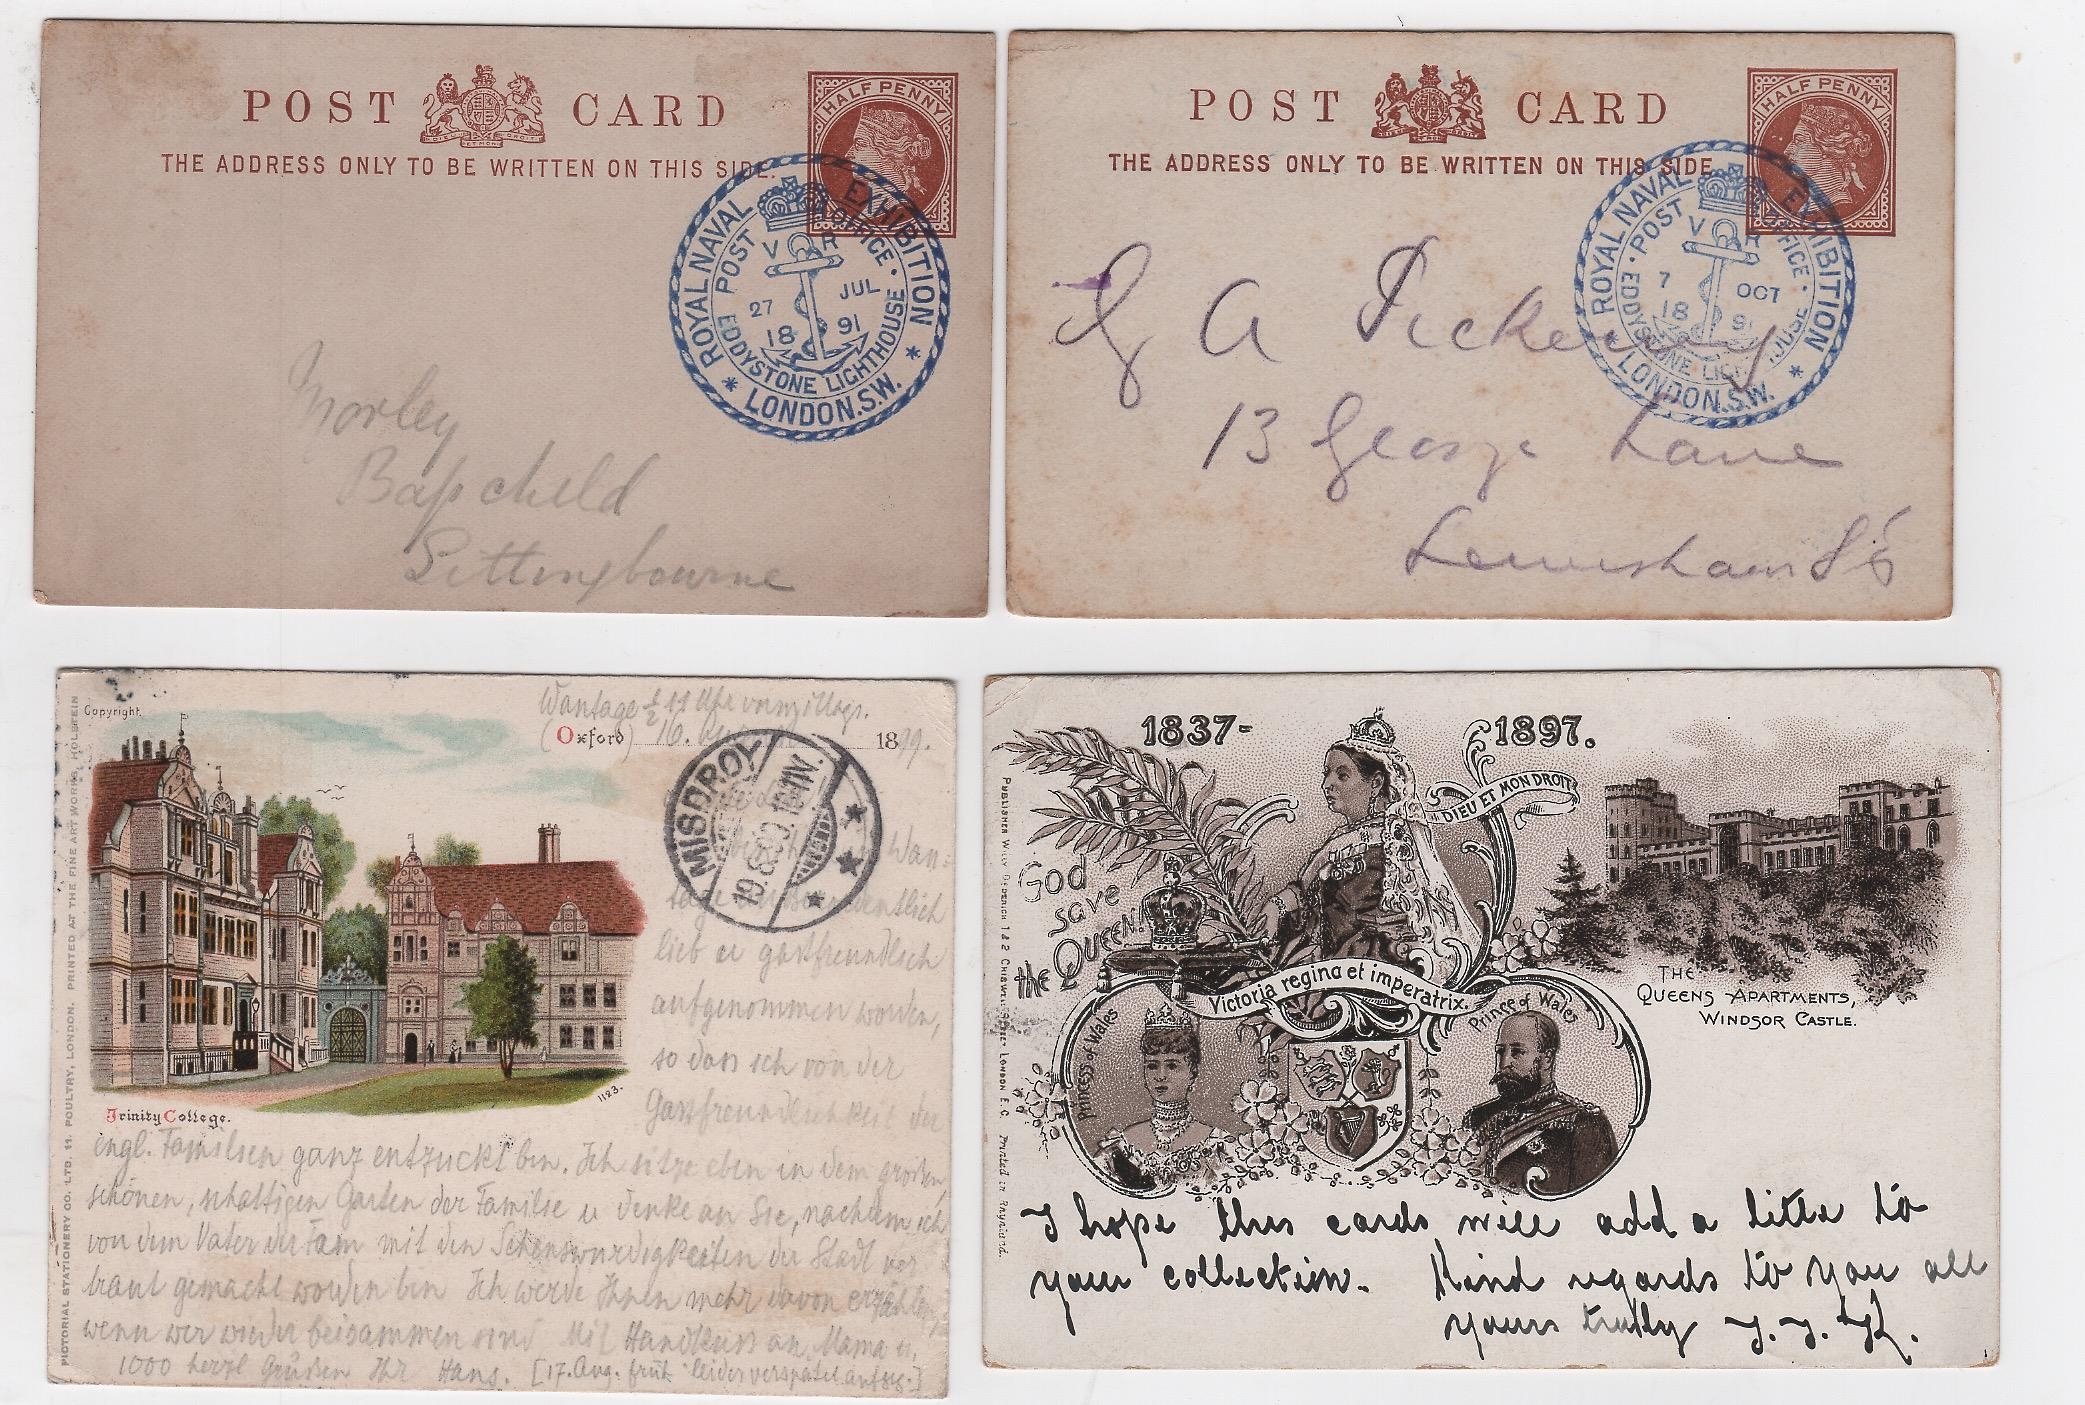 POST CARD
THE ADDRESS ONLY TO BE WRITTEN ON THIS SIDE.
HALF PENNY
ROYAL NAVAL EXHIBITION
POST OFFICE
V R
27 JUL
18 91
EDDYSTONE LIGHTHOUSE
LONDON.S.W.
Morley
Bapchild
Sittingbourne
POST CARD
THE ADDRESS ONLY TO BE WRITTEN ON THIS SIDE.
HALF PENNY
ROYAL NAVAL EXHIBITION
POST OFFICE
V R
7 OCT
18 91
EDDYSTONE LIGHTHOUSE
LONDON.S.W.
G A Pickering
13 George Lane
Lewisham SE
Copyright.
Wantage ½ 11 Uhr vormittags.
(Oxford) 16. 1899.
MISDROY
19.8.99
Wan-
tage
lieb u gastfreundlich
aufgenommen worden,
so dass ich von der
Gastfreundlichkeit der
1123.
Trinity College.
engl. Familien ganz entzückt bin. Ich sitze eben in dem großen,
schönen, schattigen Garten der Familie u denke an Sie, nachdem ich
von dem Vater der Fam mit den Sehenswürdigkeiten der Stadt ver
traut gemacht worden bin Ich werde Ihnen mehr davon erzählen,
wenn wir wieder beisammen sind Mit Handkuss an Mama u.
1000 herzl Grüßen Ihr Hans. [17. Aug. früh leider verspätet aufgeg.]
PICTORIAL STATIONERY CO. LTD. 11. POULTRY, LONDON. PRINTED AT THE FINE ART WORKS, HOLSTEIN
1837-1897.
DIEU ET MON DROIT
God
save
the Queen!
Victoria regina et imperatrix.
Princess of Wales
Prince of Wales
THE
QUEENS APARTMENTS,
WINDSOR CASTLE.
I hope this cards will add a little to
your collection. Kind regards to you all
yours truly
LONDON E.C. Printed in